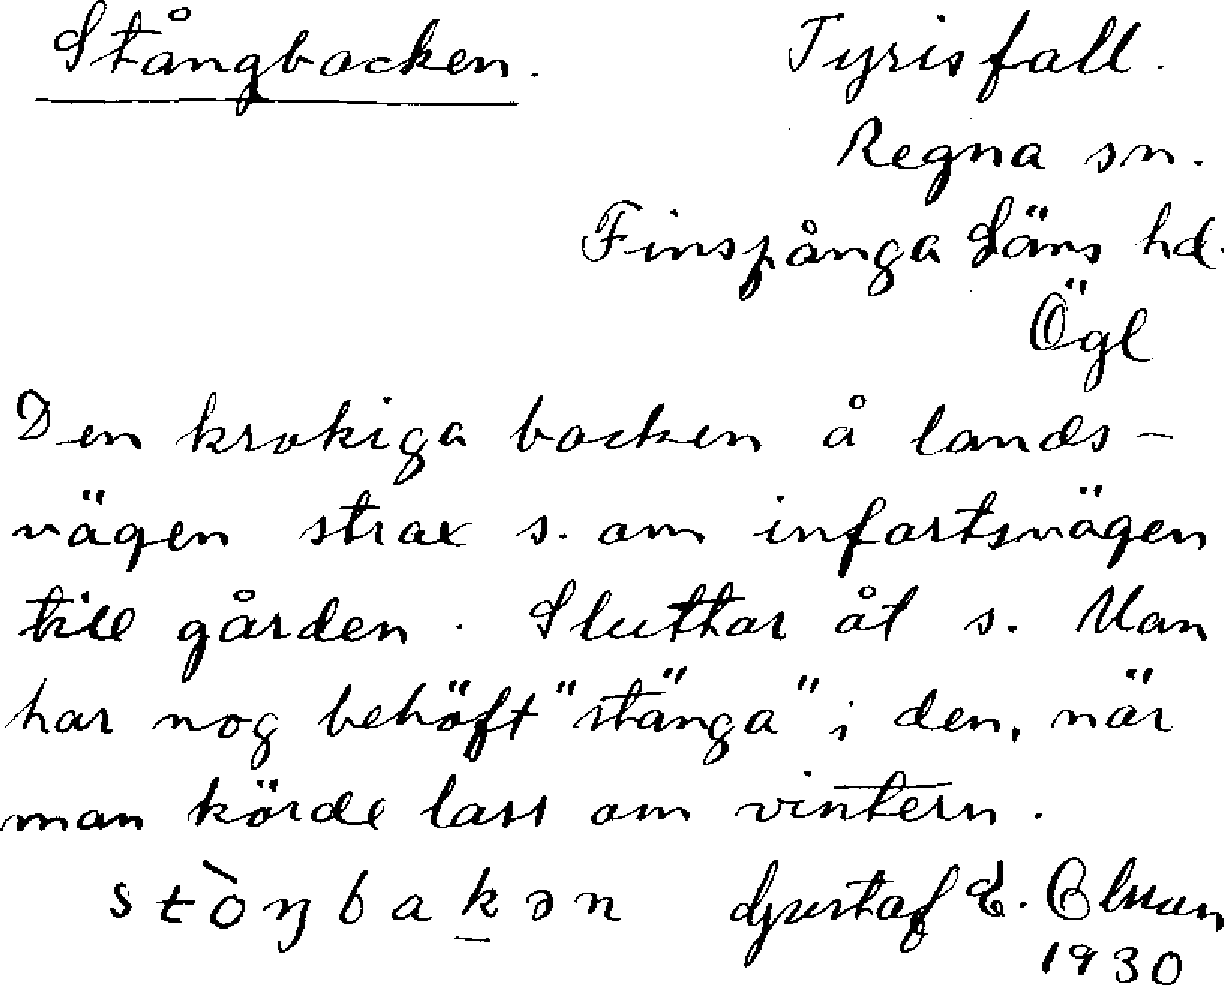 Stångbacken. Tyrisfall.
Regna sn.
Finspånga Läns hd.
Ögl
Den krokiga backen å lands-
vägen strax s. om infartsvägen
till gården. Sluttar åt s. Man
har nog behöft "stänga" i den, när
man körde lass om vintern.
stòŋbakən Gustaf E. Olsson
1930